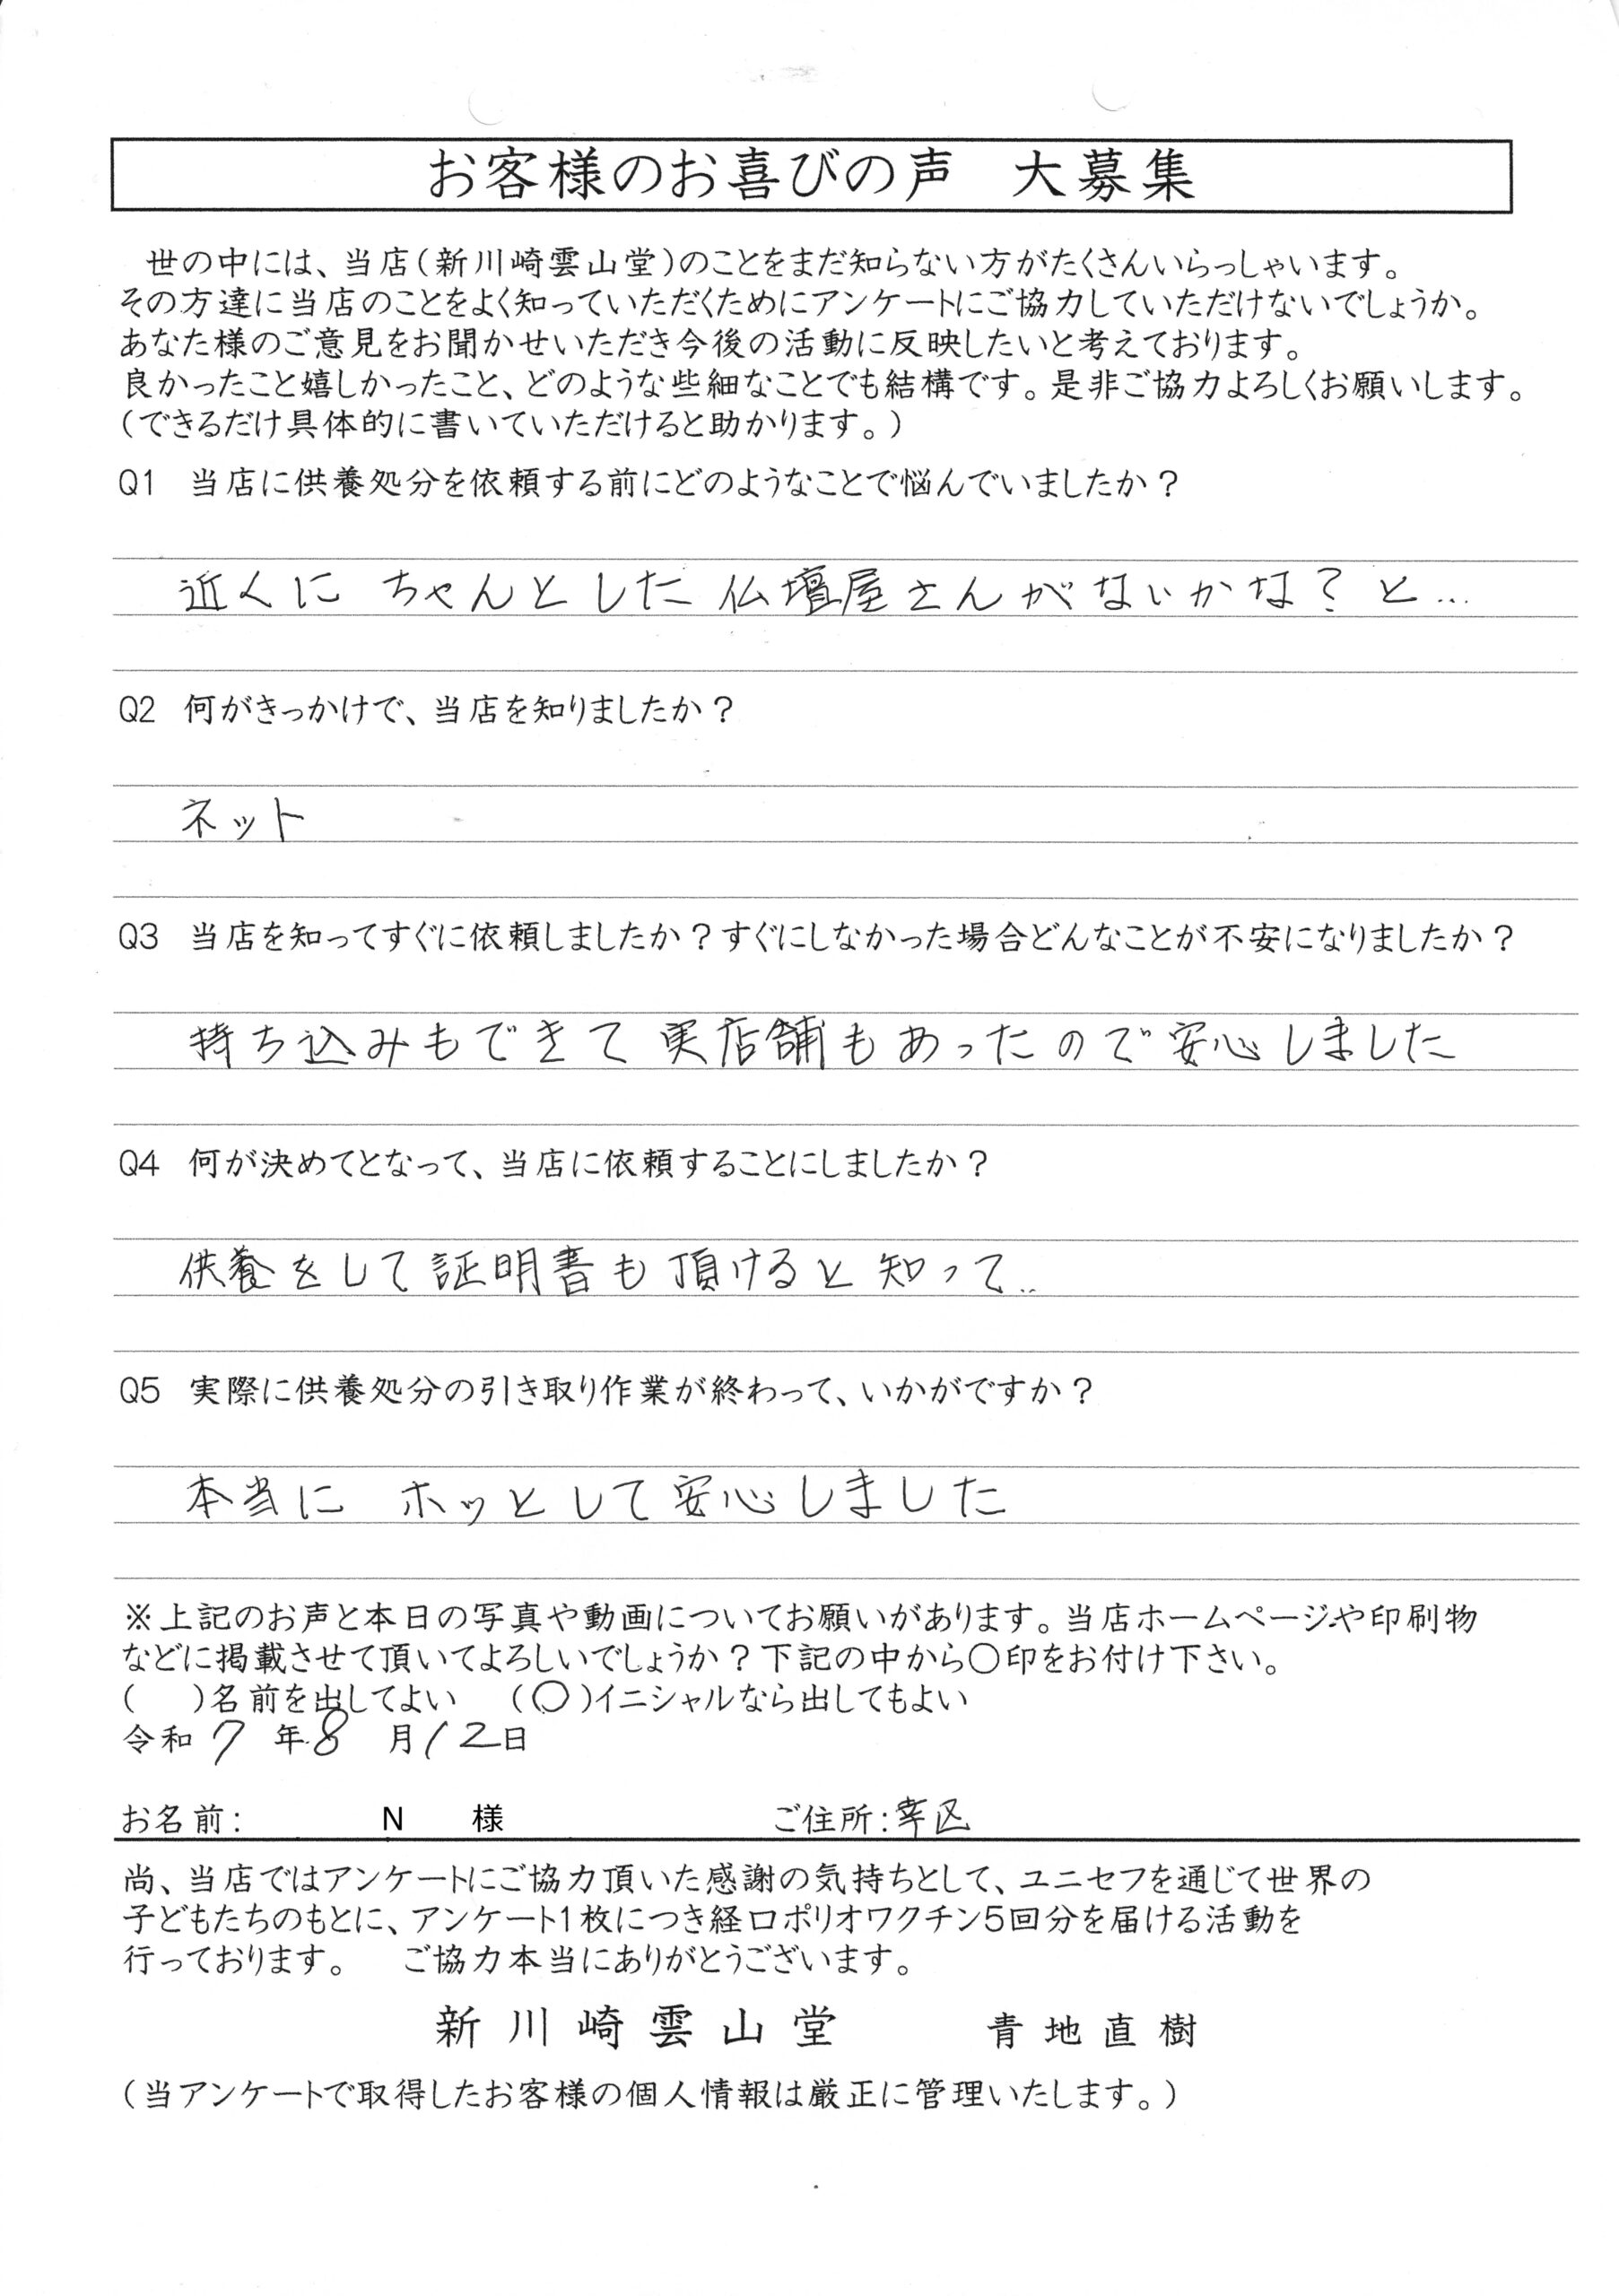 お客様のお喜びの声　大募集
世の中には、当店（新川崎雲山堂）のことをまだ知らない方がたくさんいらっしゃいます。
その方達に当店のことをよく知っていただくためにアンケートにご協力していただけないでしょうか。
あなた様のご意見をお聞かせいただき今後の活動に反映したいと考えております。
良かったこと嬉しかったこと、どのような些細なことでも結構です。是非ご協力よろしくお願いします。
（できるだけ具体的に書いていただけると助かります。）
Q1　当店に供養処分を依頼する前にどのようなことで悩んでいましたか？
近くに ちゃんとした 仏壇屋さんがないかな？と…
Q2　何がきっかけで、当店を知りましたか？
ネット
Q3　当店を知ってすぐに依頼しましたか？すぐにしなかった場合どんなことが不安になりましたか？
持ち込みもできて 実店舗もあったので安心しました
Q4　何が決めてとなって、当店に依頼することにしましたか？
供養をして証明書も頂けると知って..
Q5　実際に供養処分の引き取り作業が終わって、いかがですか？
本当に ホッとして安心しました
※上記のお声と本日の写真や動画についてお願いがあります。当店ホームページや印刷物
などに掲載させて頂いてよろしいでしょうか？下記の中から〇印をお付け下さい。
（　　）名前を出してよい　（〇）イニシャルなら出してもよい
令和 7 年 8 月 12 日
お名前：　N　様　ご住所：幸区
尚、当店ではアンケートにご協力頂いた感謝の気持ちとして、ユニセフを通じて世界の
子どもたちのもとに、アンケート1枚につき経口ポリオワクチン5回分を届ける活動を
行っております。　ご協力本当にありがとうございます。
新川崎雲山堂　青地直樹
（当アンケートで取得したお客様の個人情報は厳正に管理いたします。）